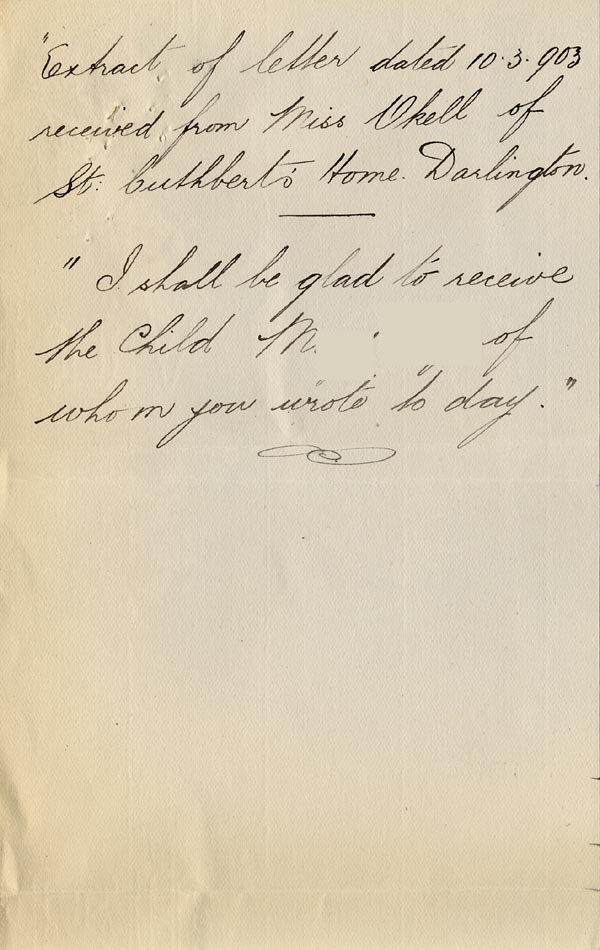 "Extract of letter dated 10.3.903
received from Miss Okell of
St: Cuthbert's Home. Darlington.
" I shall be glad to receive
the Child M. of
whom you wrote to day."